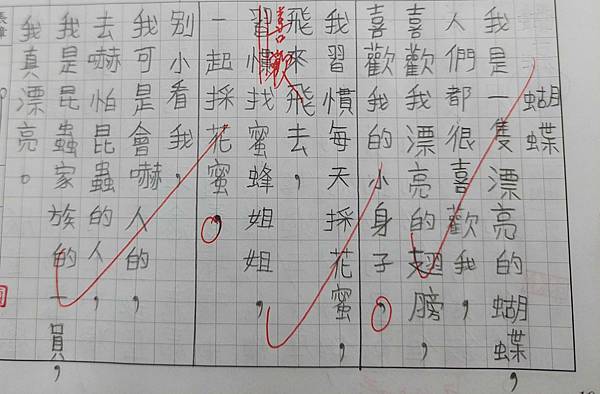 蝴蝶
我是一隻漂亮的蝴蝶，
人們都很喜歡我，
喜歡我漂亮的翅膀，
喜歡我的小身子，
我習慣每天採花蜜，
飛來飛去，
習慣找蜜蜂姐姐，
喜歡
一起採花蜜，
别小看我，
我可是會嚇人的，
去嚇怕昆蟲的人，
我是昆蟲家族的一員，
我真漂亮。